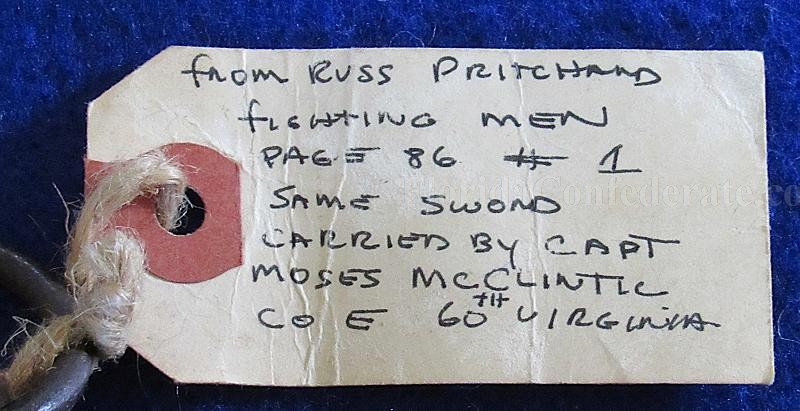 from RUSS PRITCHARD
FIGHTING MEN
PAGE 86 # 1
SAME SWORD
CARRIED BY CAPT
MOSES MCCLINTIC
CO E 60TH VIRGINIA